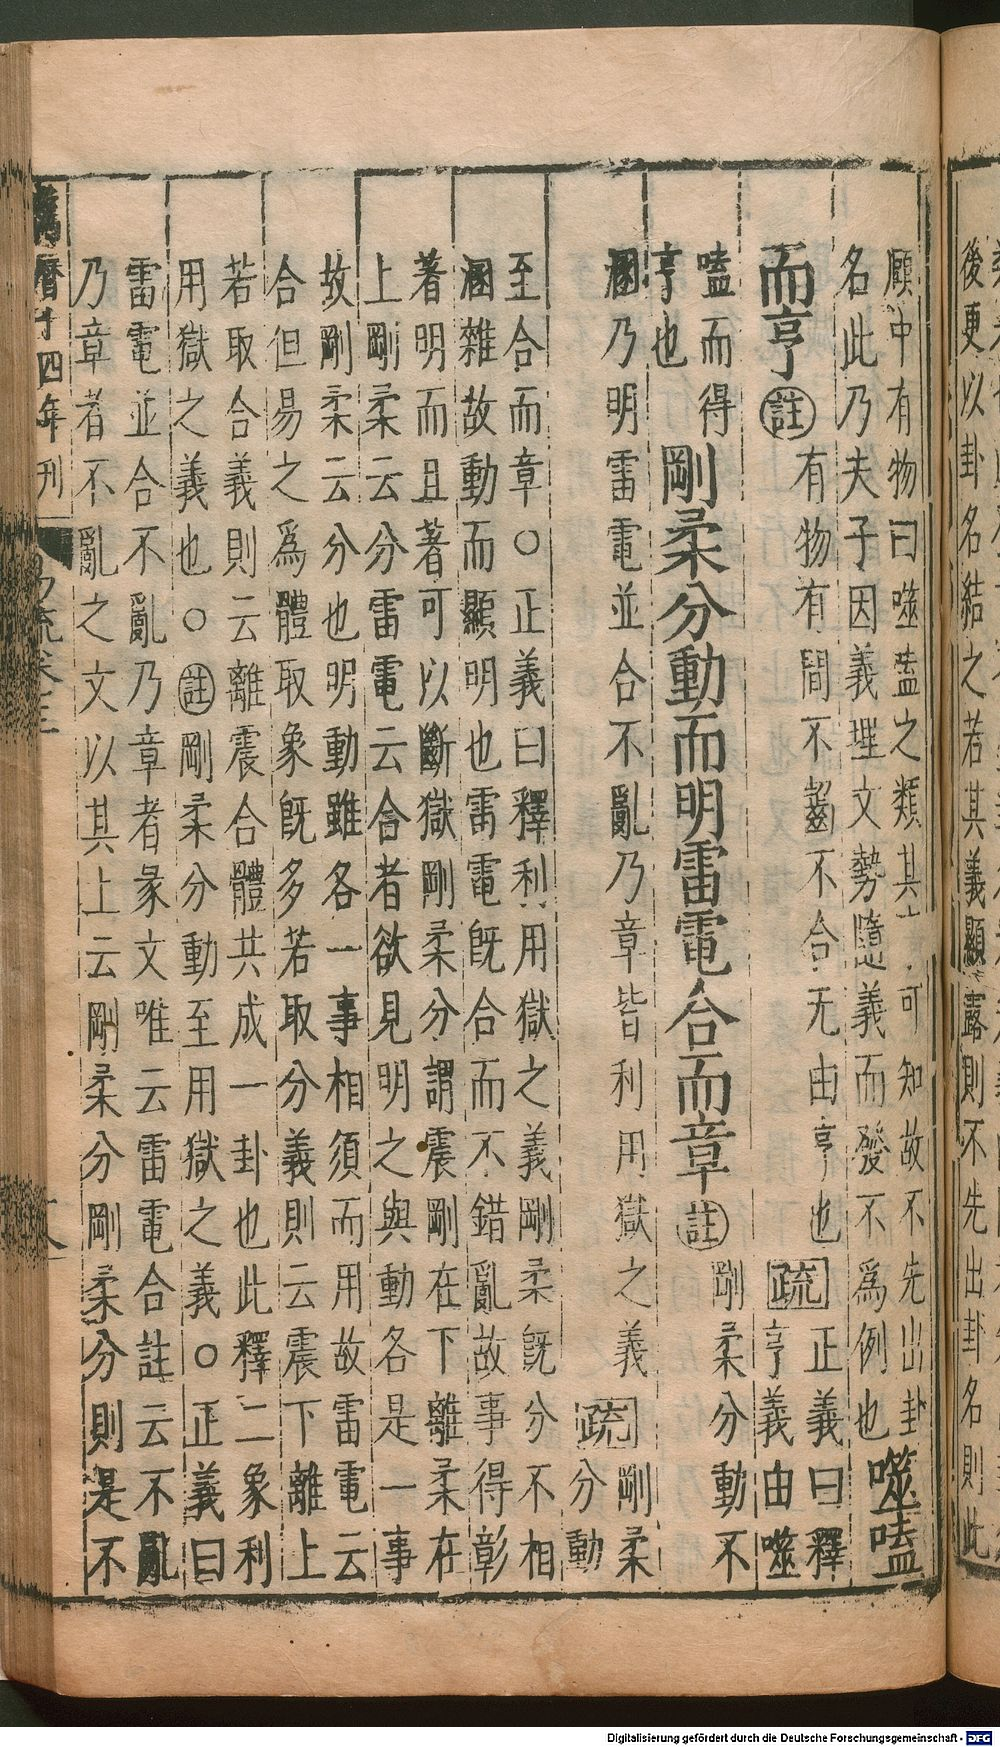 後更以卦名結之若其義顯露則不先出卦名則此
頤中有物曰噬嗑之類其可知故不先出卦
名此乃夫子因義理文勢隨義而發不為例也噬嗑
而亨註有物有間不齧不合无由亨也疏正義曰釋
亨義由噬
嗑而得
亨也剛柔分動而明雷電合而章註剛柔分動不
溷乃明雷電並合不亂乃章皆利用獄之義疏剛柔
分動
至合而章○正義曰釋利用獄之義剛柔既分不相
溷雜故動而顯明也雷電既合而不錯亂故事得彰
著明而且著可以斷獄剛柔分謂震剛在下離柔在
上剛柔云分雷電云合者欲見明之與動各是一事
故剛柔云分也明動雖各一事相須而用故雷電云
合但易之為體取象既多若取分義則云震下離上
若取合義則云離震合體共成一卦也此釋二象利
用獄之義也○註剛柔分動至用獄之義○正義曰
雷電並合不亂乃章者彖文唯云雷電合註云不亂
乃章者不亂之文以其上云剛柔分剛柔分則是不
萬曆十四年刊
易疏卷三
Digitalisierung gefördert durch die Deutsche Forschungsgemeinschaft - DFG